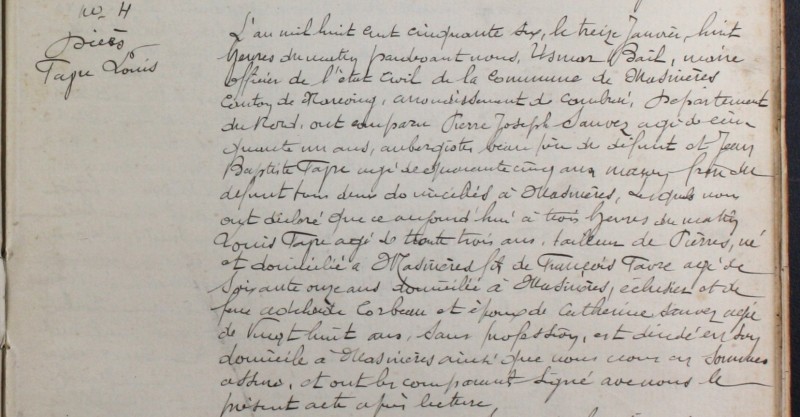 No 4
Décès
Tapre Louis
L'an mil huit cent cinquante six, le treize Janvier, huit
heures du matin pardevant nous, Usmar Bail, maire
officier de l'état civil de la Commune de Masnières
Canton de Marcoing, arrondissement de Cambrai, Département
du Nord, ont comparu Pierre Joseph Sauvez agé de cin
quante un ans, aubergiste beau père du défunt et Jean
Baptiste Tapre agé de quarante cinq ans maçon, frère du
défunt tous deux domiciliés à Masnières, lesquels nous
ont déclaré que ce aujourd'hui à trois heures du matin
Louis Tapre agé de trente trois ans, tailleur de Pierres, né
et domicilié à Masnières fils de François Tapre agé de
soixante onze ans domicilié à Masnières, éclusier et de
feue adelaide Corbeau et époux de Catherine Sauvez agée
de vingt huit ans, sans profession, est décédé en son
domicile à Masnières ainsi que nous nous en sommes
assuré, et ont les comparant signé avec nous le
présent acte après lecture,